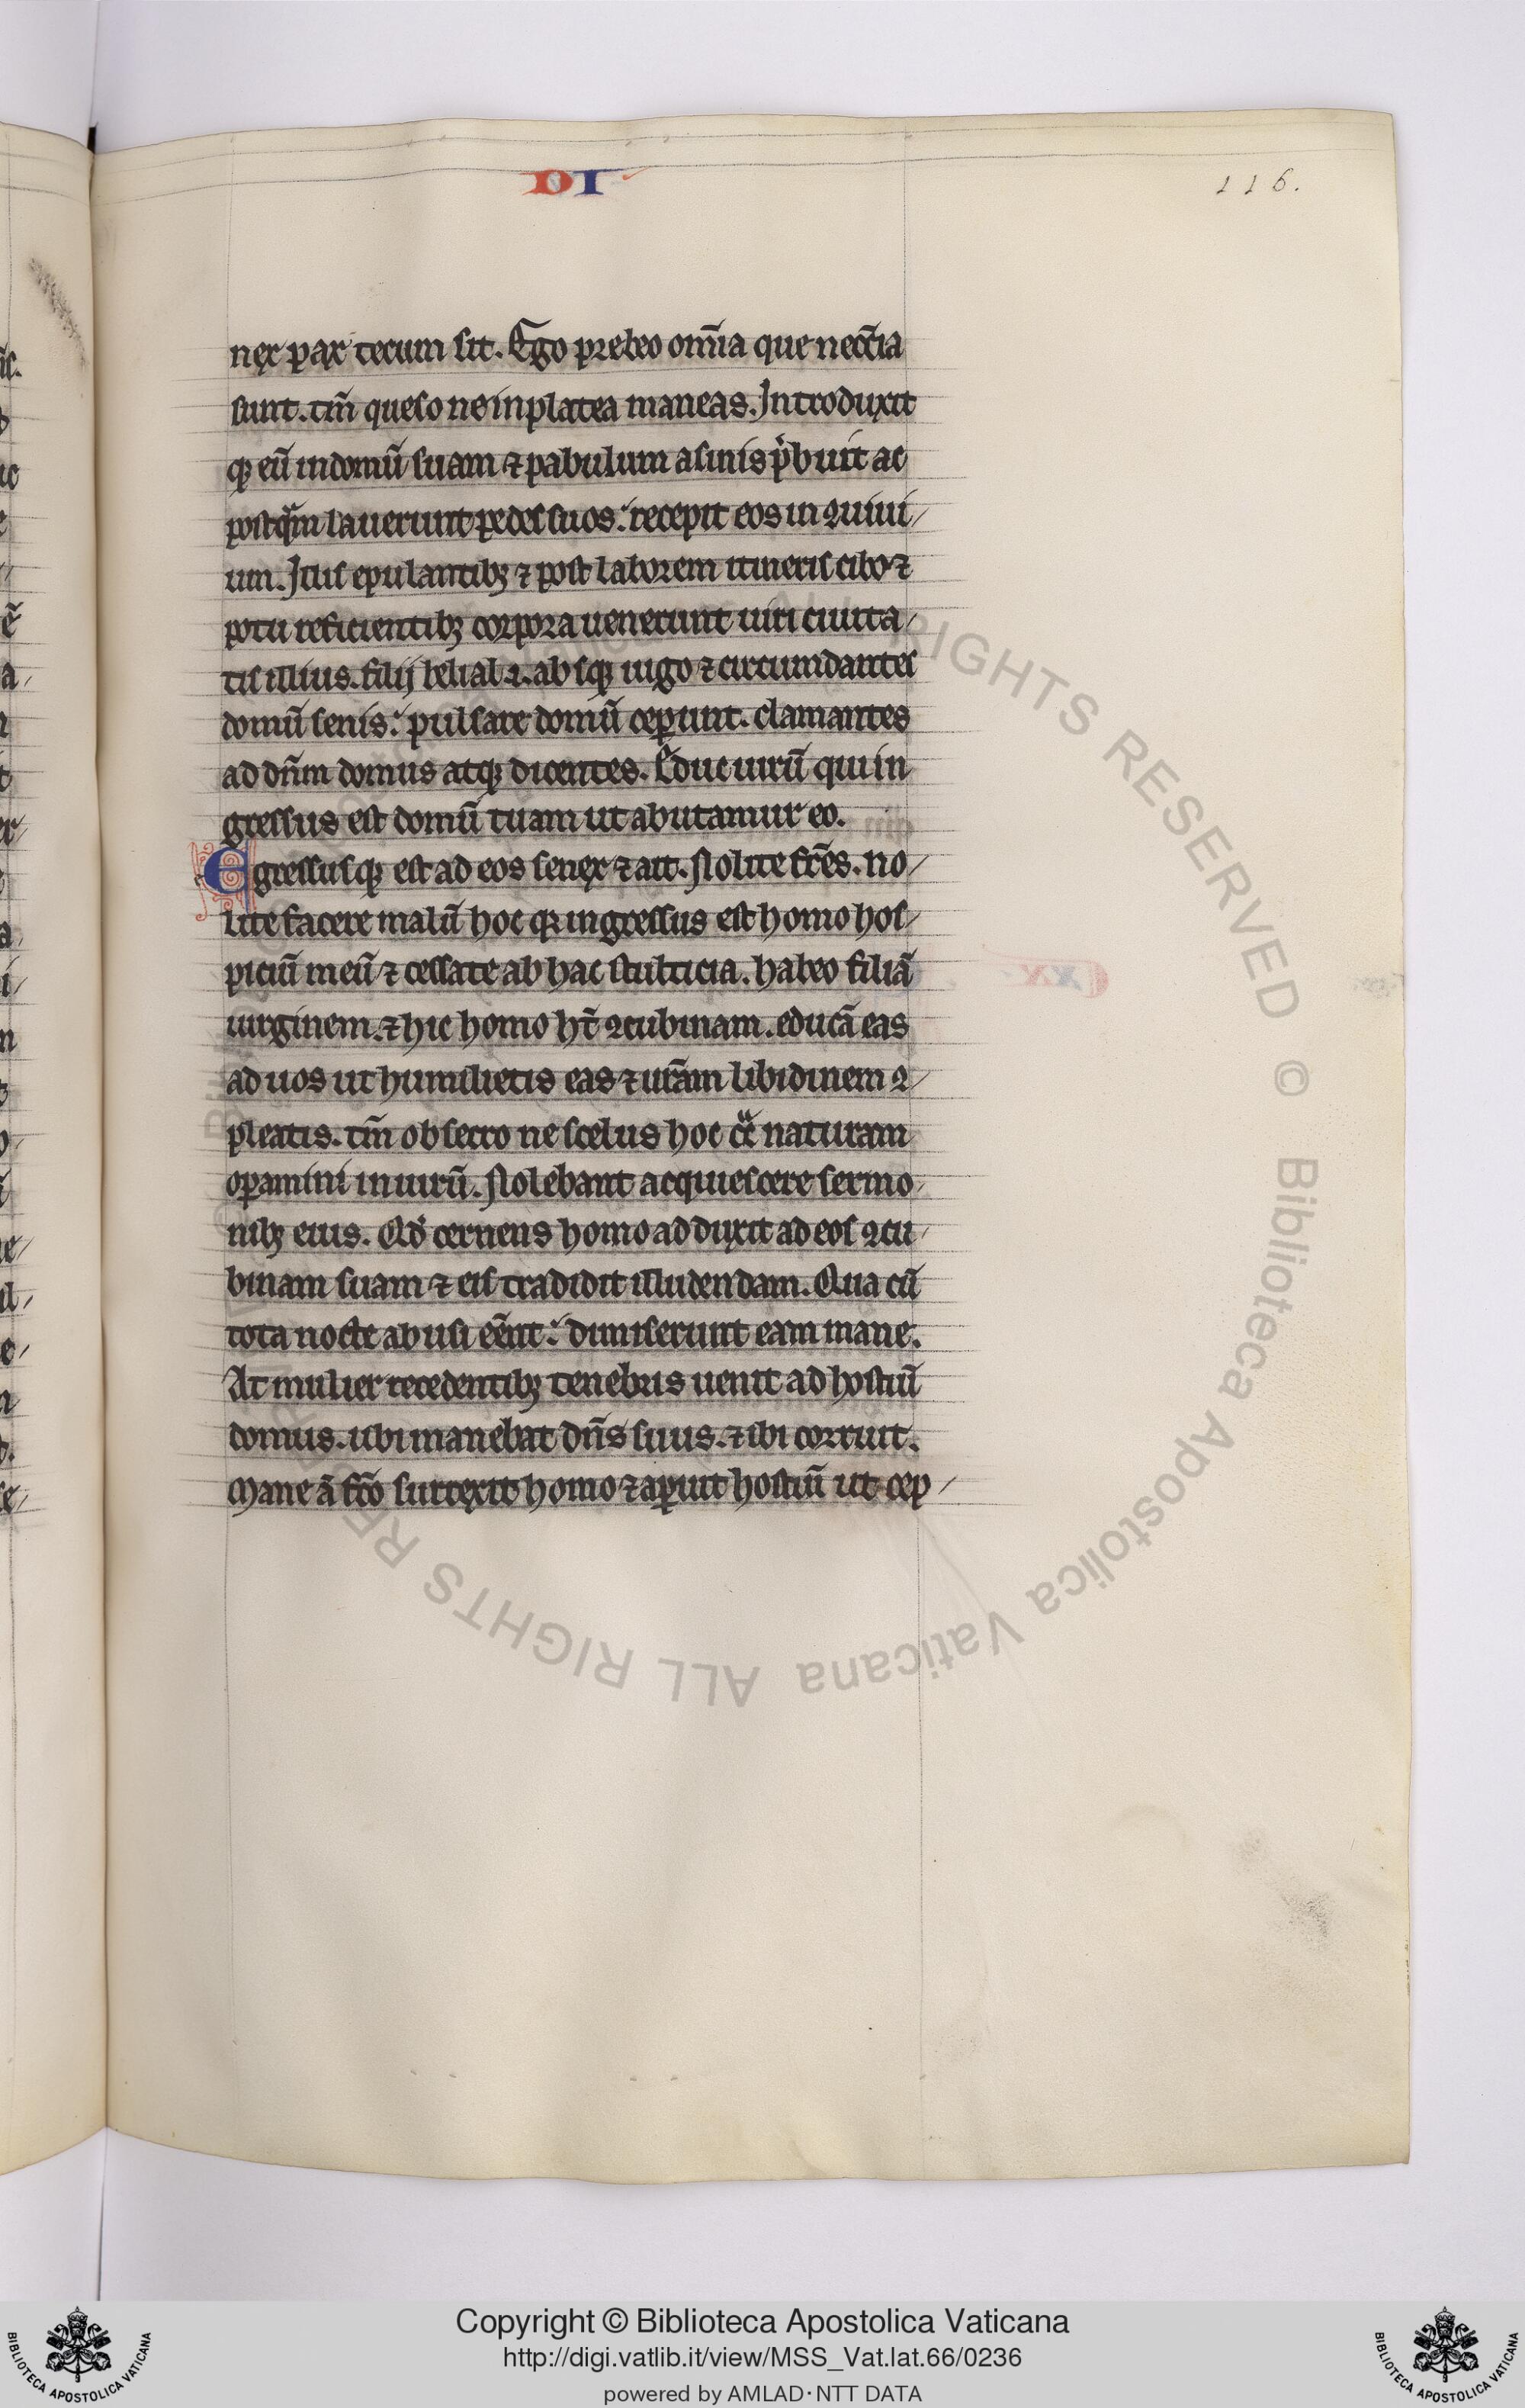 DI
116.
nex pax tecum sit. Ego prebeo om̄ia que neccīa
sunt. tm̄ queso ne in platea maneas. Introduxit
qꝫ eū in domū suam ⁊ pabulum asinis p̾buit ac
postq̄m lauerunt pedes suos: recepit eos in ꝯuiui/
um. Illis epulantibꝫ ⁊ post laborem itineris cibo ⁊
potu reficientibꝫ corpora uenerunt uiri ciuita/
tis illius. filij belial .i. absqꝫ iugo ⁊ circumdantes
domū senis: pulsare domū ceꝑunt. clamantes
ad dn̄m domus atqꝫ dicentes. Educ uirū qui in
gressus est domū tuam ut abutamur eo.
Egressusqꝫ est ad eos senex ⁊ ait. Nolite fr̄es. no/
lite facere malū hoc qꝛ ingressus est homo hos/
piciū meū ⁊ cessate ab hac stulticia. habeo filiā
uirginem. ⁊ hic homo ht̄ ꝯcubinam. educā eas
ad uos ut humilietis eas ⁊ ur̄am libidinem ꝯ/
pleatis. tm̄ obsecro ne scelus hoc cͣ̄ naturam
oꝑamini in uirū. Nolebant acquiescere sermo/
nibꝫ eius. Qd̾ cernens homo adduxit ad eos ꝯcu/
binam suam ⁊ eis tradidit illudendam. Qua cū
tota nocte abusi eēnt: dimiserunt eam mane.
At mulier recedentibꝫ tenebris uenit ad hostiū
domus. ubi manebat dn̄s suus. ⁊ ibi corruit.
Mane ā fc̄o surrexit homo ⁊ aꝑuit hostiū ut cep/
Copyright © Biblioteca Apostolica Vaticana
http://digi.vatlib.it/view/MSS_Vat.lat.66/0236
powered by AMLAD·NTT DATA
BIBLIOTECA APOSTOLICA VATICANA
BIBLIOTECA APOSTOLICA VATICANA
© Biblioteca Apostolica Vaticana ALL RIGHTS RESERVED